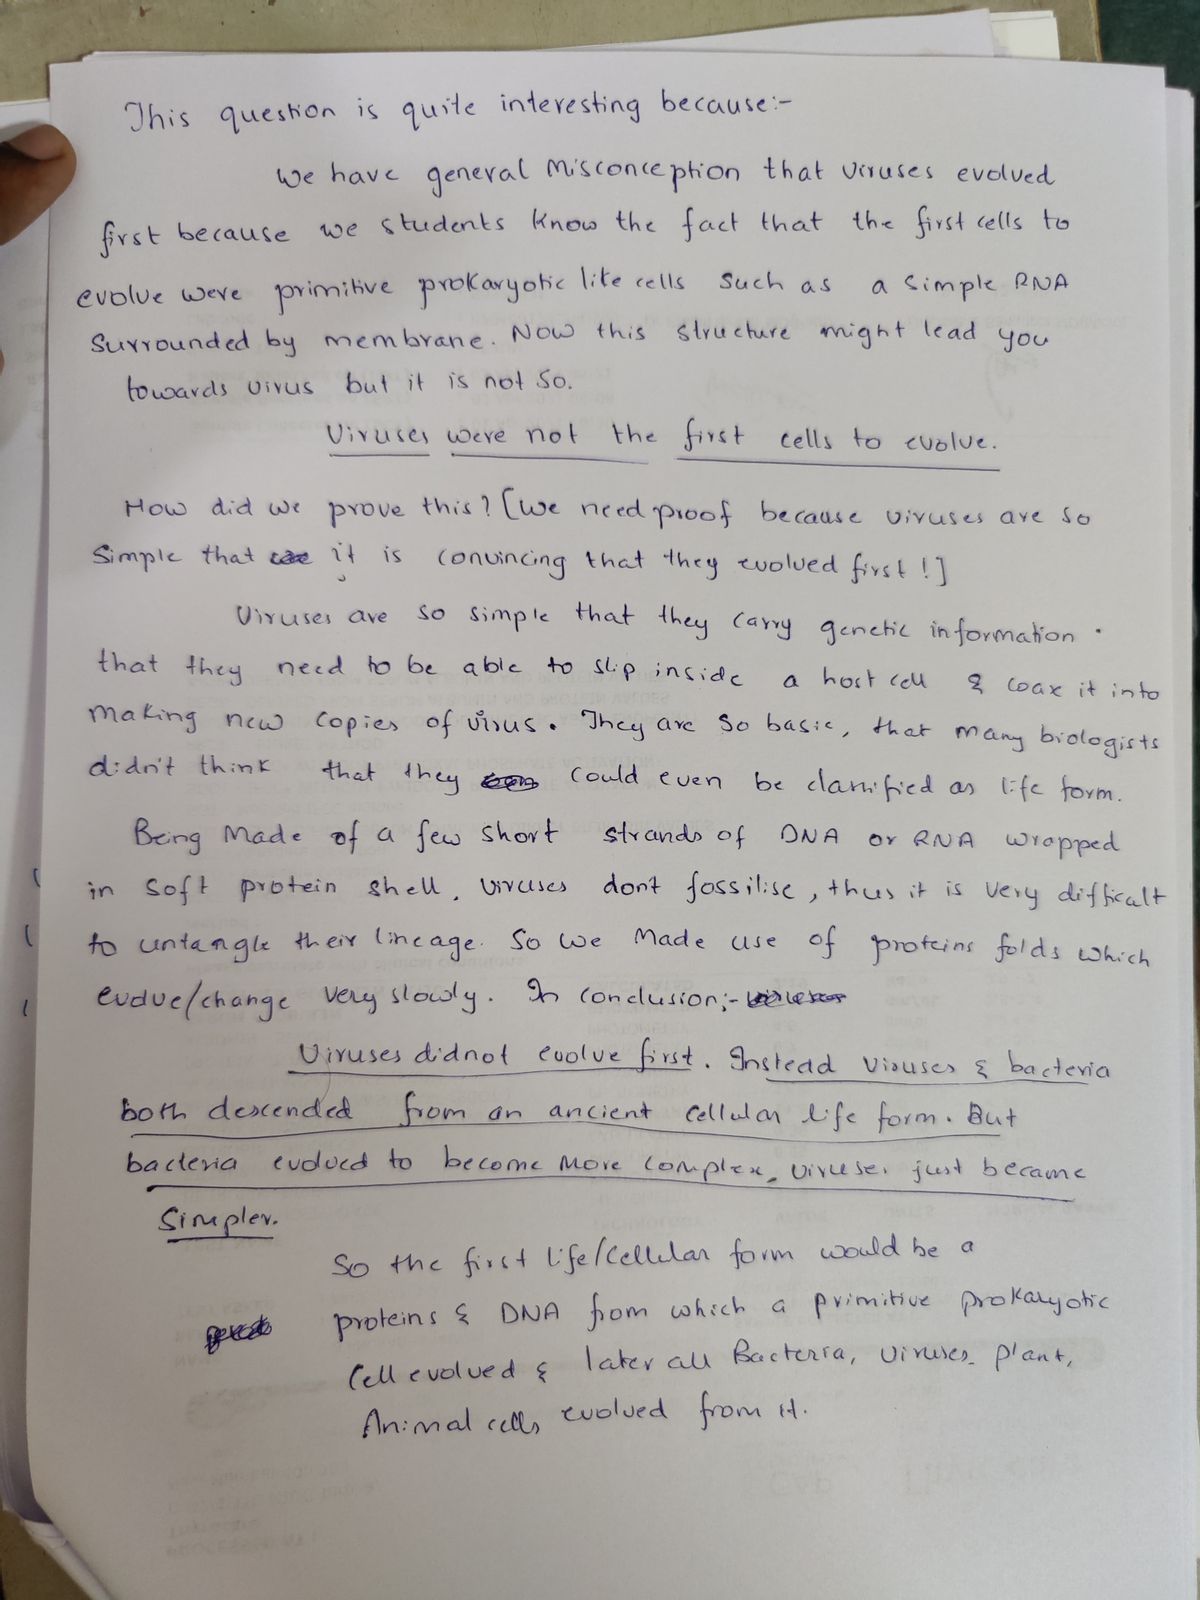 This question is quite interesting because:-
We have general misconception that viruses evolved
first because we students know the fact that the first cells to
evolve were primitive prokaryotic like cells such as a simple RNA
surrounded by membrane. Now this structure might lead you
towards virus but it is not so.
Viruses were not the first cells to evolve.
How did we prove this? [We need proof because viruses are so
simple that it is convincing that they evolved first!]
Viruses are so simple that they carry genetic information
that they need to be able to slip inside a host cell & coax it into
making new copies of virus. They are so basic, that many biologists
didn't think that they could even be classified as life form.
Being made of a few short strands of DNA or RNA wrapped
in soft protein shell, viruses don't fossilise, thus it is very difficult
to untangle their lineage. So we made use of proteins folds which
evolve/change very slowly. In conclusion;-
Viruses didnot evolve first. Instead viruses & bacteria
both descended from an ancient cellular life form. But
bacteria evolved to become more complex, viruses just became
simpler.
So the first life/cellular form would be a
proteins & DNA from which a primitive prokaryotic
cell evolved & later all Bacteria, viruses, plant,
Animal cells evolved from it.